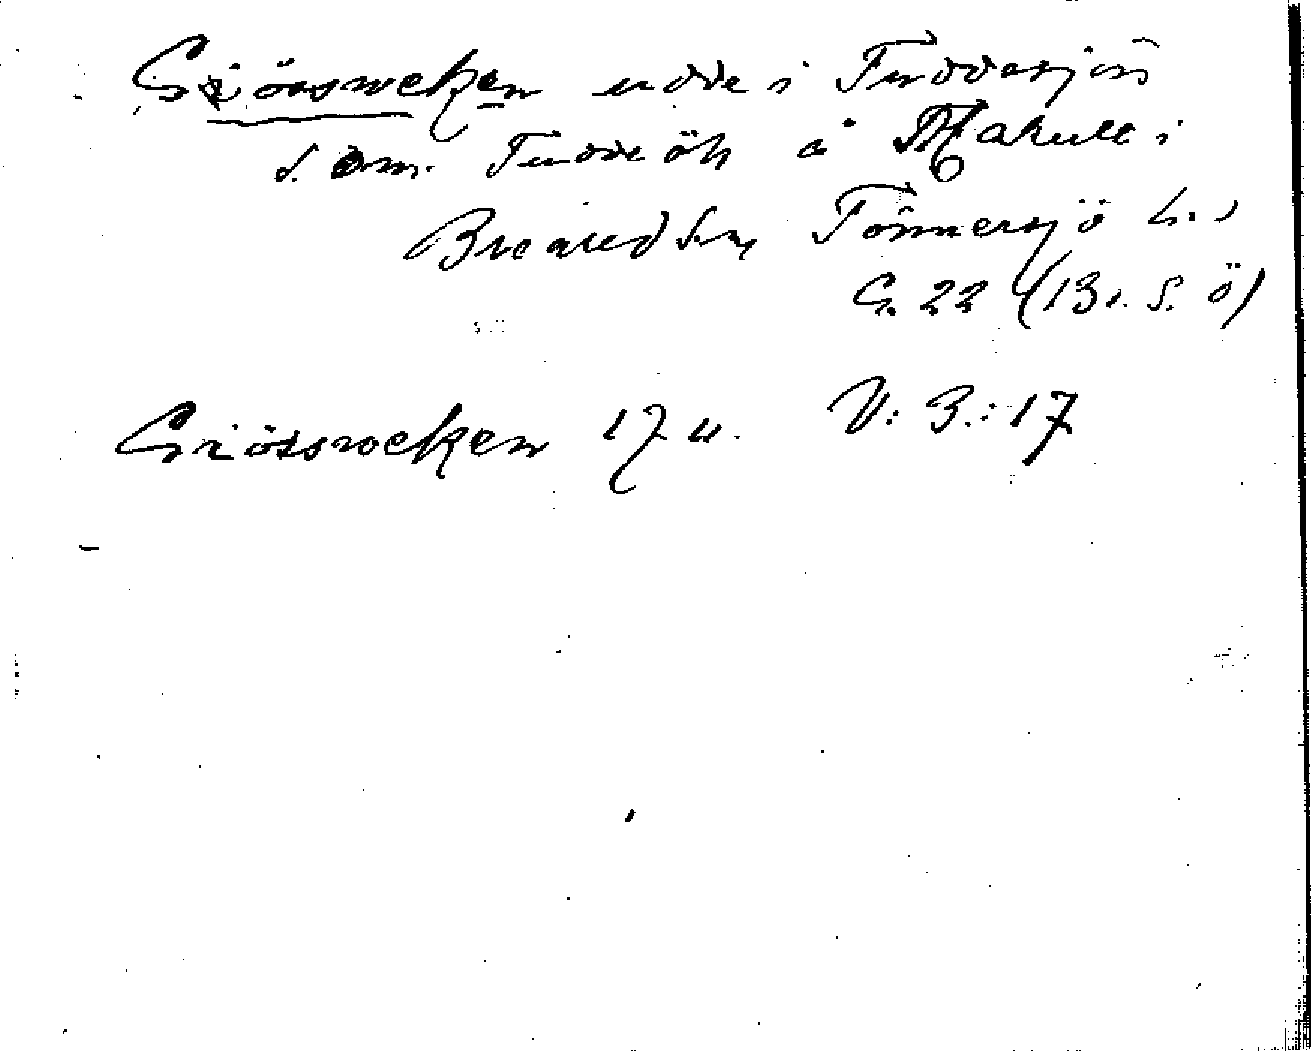 Giössweken udde i Tuddasjön
S. om Tudde öh å Mahult i
Breared Sn, Tönnersjö h.,
G. 22 (13 1. S. ö)
Giössweken 17 u. V: 3.: 17